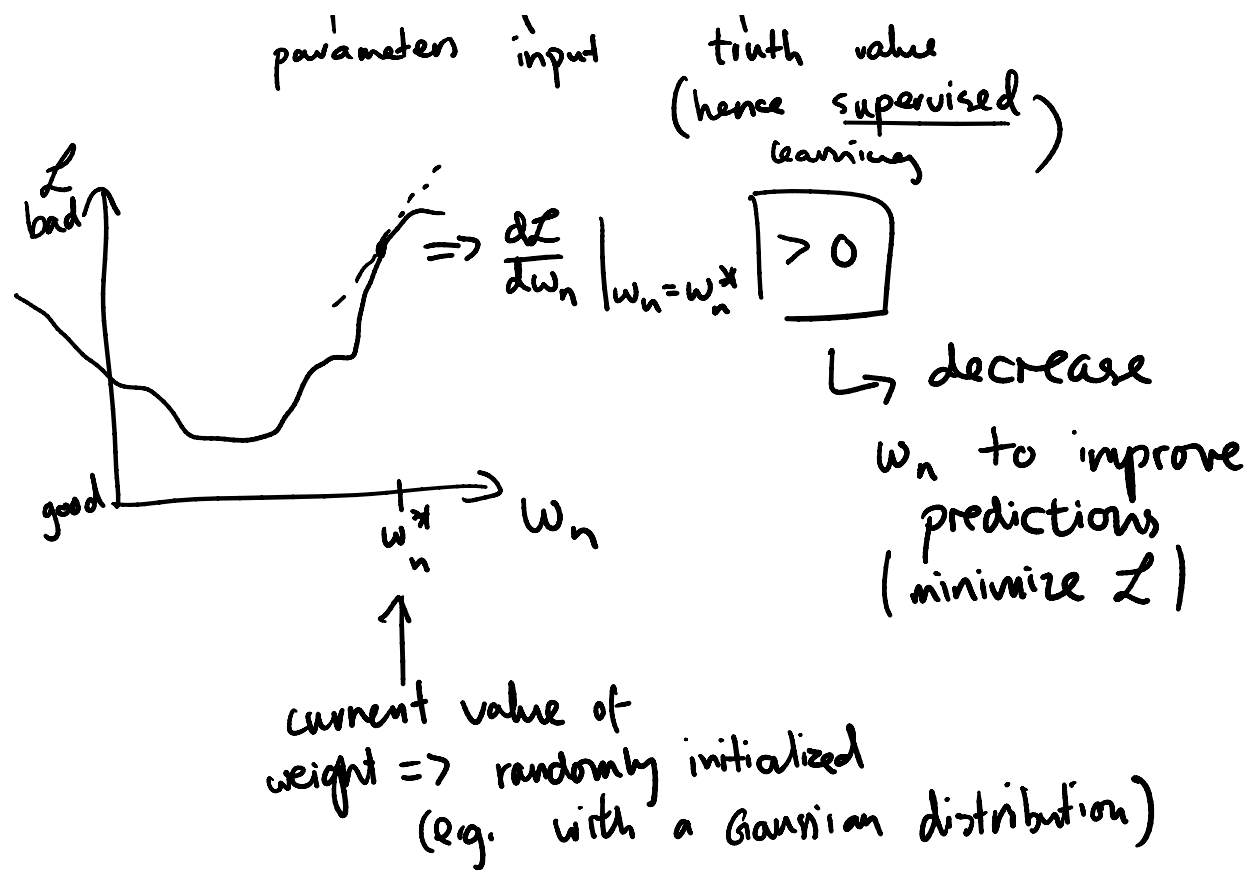 parameters input truth value
(hence supervised
learning)
ℒ
bad
=> dℒ/dwₙ |wₙ=wₙ* > 0
↳ decrease
wₙ to improve
predictions
(minimize ℒ)
good
wₙ*
wₙ
current value of
weight => randomly initialized
(e.g. with a Gaussian distribution)